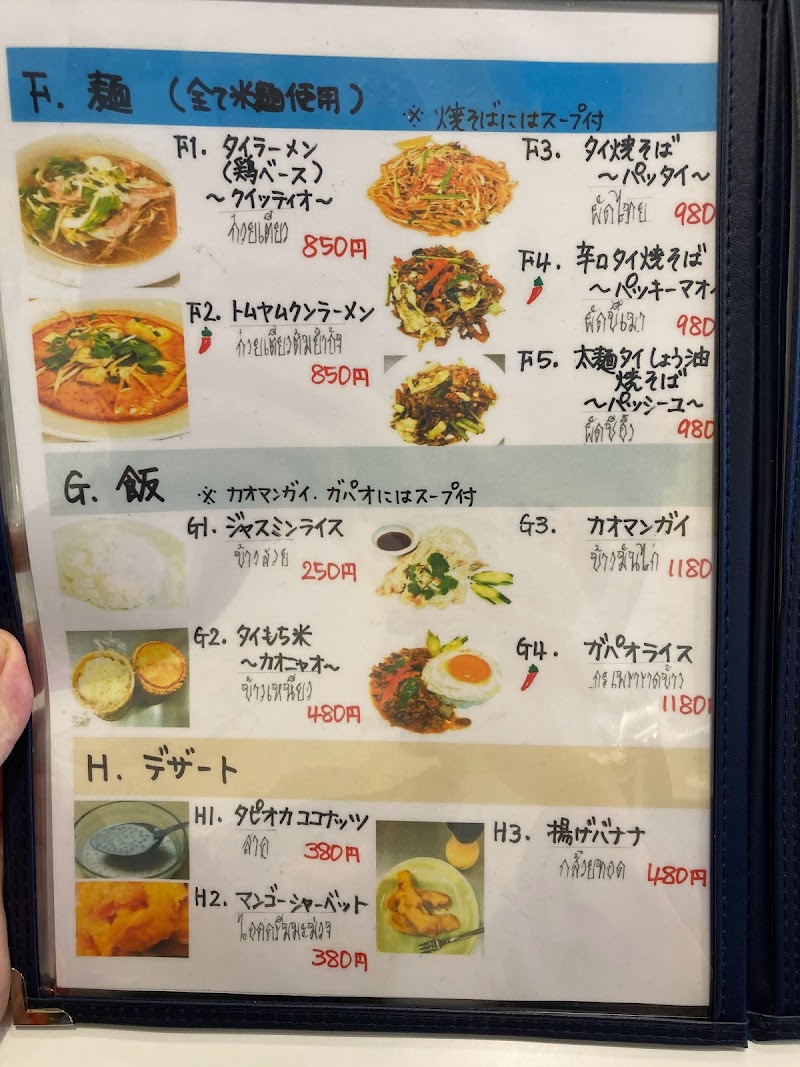 F. 麺 (全て米麺使用)
※ 焼そばにはスープ付
F1. タイラーメン
(鶏ベース)
～クイッティオ～
ก๋วยเตี๋ยว
850円
F2. トムヤムクンラーメン
ก๋วยเตี๋ยวต้มยำกุ้ง
850円
F3. タイ焼そば
～パッタイ～
ผัดไทย
980
F4. 辛口タイ焼そば
～パッキーマオ
ผัดขี้เมา
980
F5. 太麺タイしょう油
焼そば
～パッシーユ～
ผัดซีอิ๊ว
980
G. 飯 ※ カオマンガイ、ガパオにはスープ付
G1. ジャスミンライス
ข้าวสวย
250円
G2. タイもち米
～カオニャオ～
ข้าวเหนียว
480円
G3. カオマンガイ
ข้าวมันไก่
1180
G4. ガパオライス
กะเพราราดข้าว
1180
H. デザート
H1. タピオカココナッツ
สาคู
380円
H2. マンゴーシャーベット
ไอศครีมมะม่วง
380円
H3. 揚げバナナ
กล้วยทอด
480円